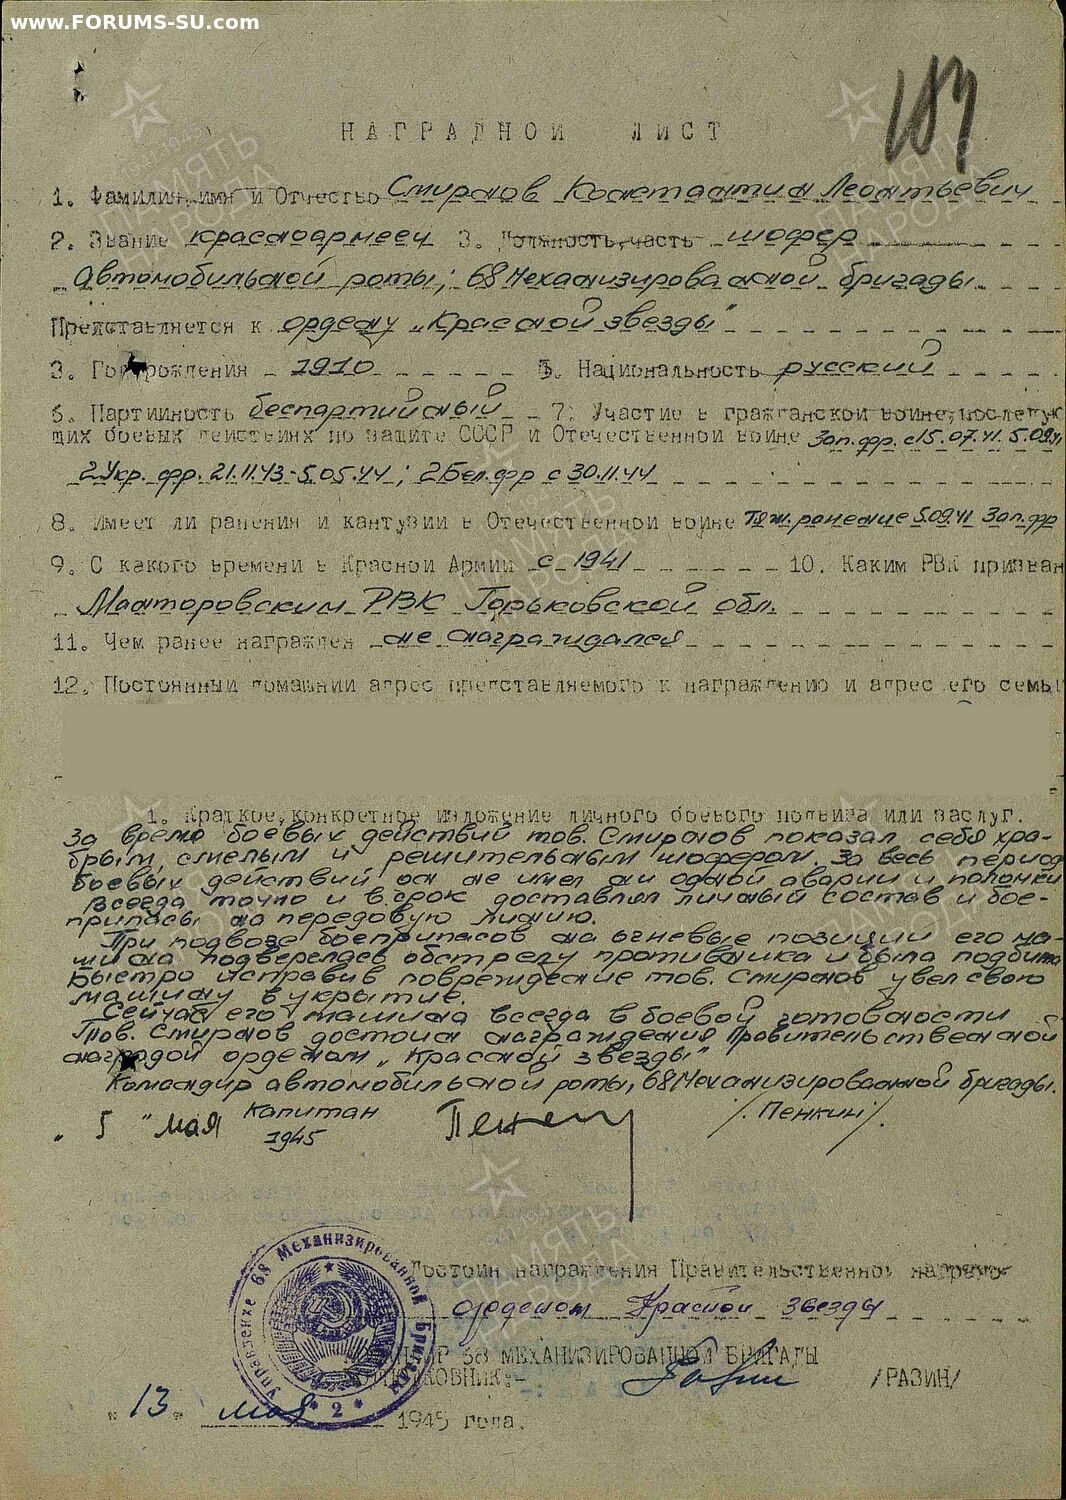 www.FORUMS-SU.com
187
НАГРАДНОЙ ЛИСТ
1. Фамилия, имя и Отчество Смирнов Константин Леонтьевич
2. Звание красноармеец 3. Должность, часть шофер
Автомобильной роты; 68 Механизированной бригады
Представляется к ордену „Красной звезды"
3. Год рождения 1910 5. Национальность русский
6. Партийность беспартийный 7. Участие в гражданской войне, последую
щих боевых действиях по защите СССР и Отечественной войне Зап. фр. с 15.07.41. 5.09.41
2 Укр. фр. 21.11.43-5.05.44; 2 Бел. фр с 30.11.44
8. Имеет ли ранения и кантузии в Отечественной войне Тяж. ранение 5.09.41 Зап. фр
9. С какого времени в Красной Армии с 1941 10. Каким РВК призван
Мантуровским РВК Горьковской обл.
11. Чем ранее награжден не награждался
12. Постоянный домашний адрес представляемого к награждению и адрес его семьи
1. Краткое, конкретное изложение личного боевого подвига или заслуг.
За время боевых действий тов. Смирнов показал себя хра-
брым, смелым и решительным шофером. За весь период
боевых действий он не имел ни одной аварии и поломки
всегда точно и в срок доставлял личный состав и бое-
припасы на передовую линию.
При подвозе боеприпасов на огневые позиции его ма-
шина подверглась обстрелу противника и была подбита
Быстро исправив повреждение тов. Смирнов увел свою
машину в укрытие.
Сейчас его машина всегда в боевой готовности
Тов. Смирнов достоин награждения Правительственной
наградой орденом „Красной звезды"
Командир автомобильной роты, 68 Механизированной бригады.
Капитан /Пенкин/
„5" мая 1945
Достоин награждения Правительственной наградой
орденом Красной звезды
КОМАНДИР 68 МЕХАНИЗИРОВАННОЙ БРИГАДЫ
ПОЛКОВНИК:- /РАЗИН/
"13" мая 1945 года.
Управление 68 Механизированной Бригады
2
ПАМЯТЬ НАРОДА